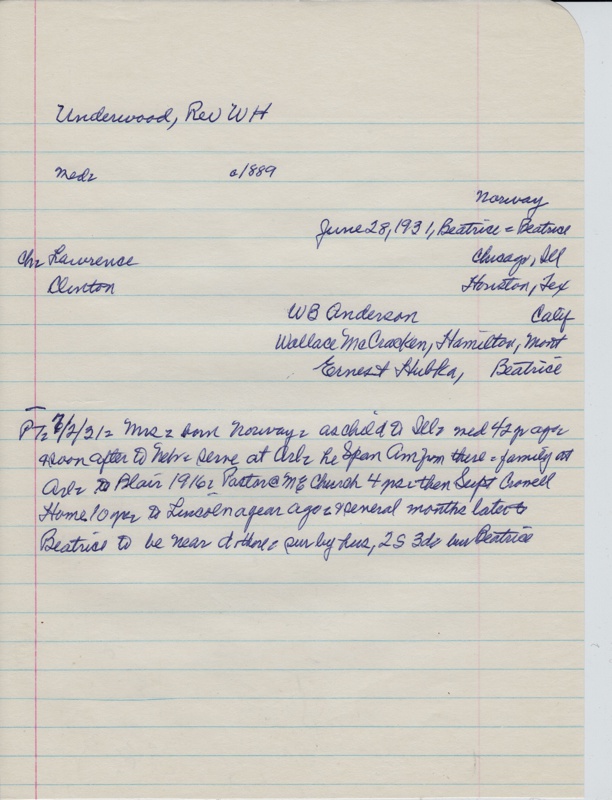 Underwood, Rev WH
Med= c/1889
Norway
June 28, 1931, Beatrice = Beatrice
Ch= Lawrence Chicago, Ill
Clinton Houston, Tex
WB Anderson Calif
Wallace McCracken, Hamilton, Mont
Ernest Hubka, Beatrice
PT= 7/2/31= Mrs = born Norway= as child to Ill= med 42 y ago=
& soon after to Nebr= serve at Arl= he Span Am from there = family at
Arl= to Blair 1916= Pastor @ ME Church 4 yrs= then Supt Crowell
Home 10 yrs= to Lincoln a year ago= & several months later to
Beatrice to be near d there= sur by hus, 2S 3ds bur Beatrice